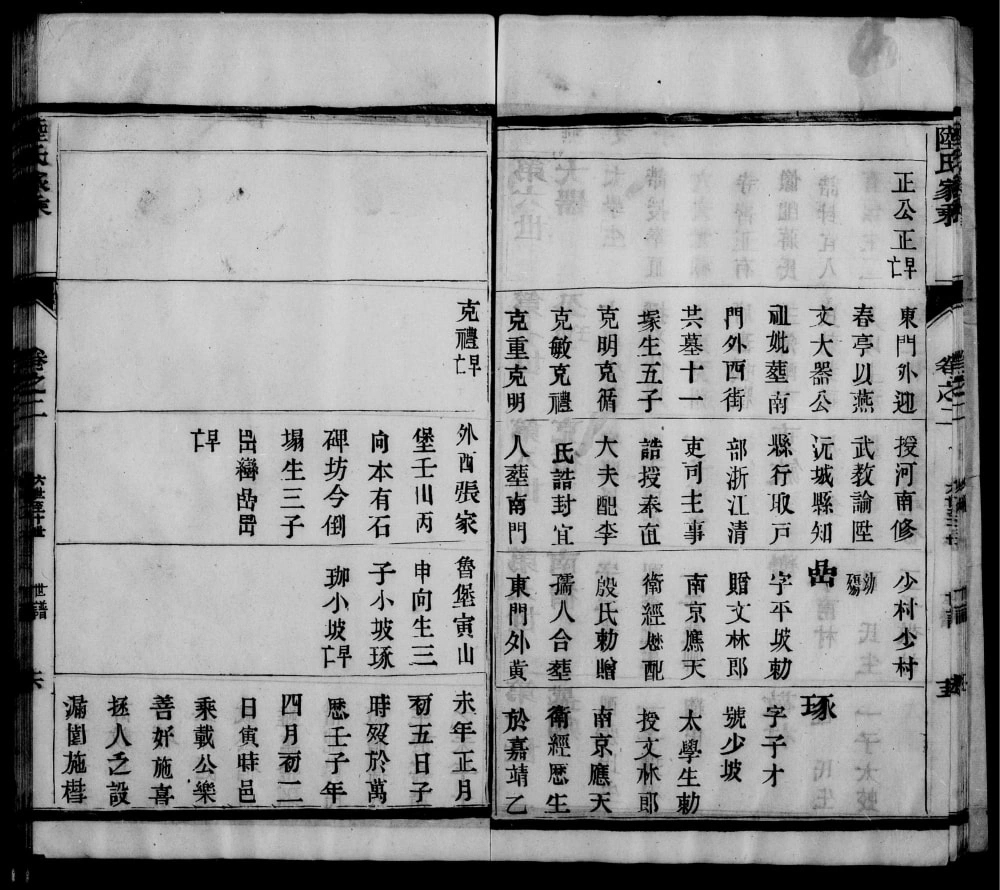 陸氏家乘 卷之二 世譜 五
正公正早亡
東門外迎
春亭以燕
文大器公
祖妣塟南
門外西街
共墓十一
塚生五子
克明克循
克敏克禮
克重克明
授河南修
武教諭陞
沅城縣知
縣行取戸
部浙江清
吏司主事
誥授奉直
大夫配李
氏誥封宜
人塟南門
少村少村
嵒
字平坡勅
贈文林郎
南京應天
衛經歴配
殷氏勅贈
孺人合塟
東門外黄
琢
字子才
號少坡
太學生勅
授文林郎
南京應天
衛經歴生
於嘉靖乙
克禮早亡
外酉張家
堡壬山丙
向本有石
碑坊今倒
塌生三子
早亡
魯堡寅山
申向生三
子小坡琢
珈小坡早亡
未年正月
初五日子
時歿於萬
歴壬子年
四月初二
日寅時邑
乘載公樂
善好施喜
拯人之設
漏園施槥
陸氏家乘 卷之二 六世至十世 世譜 六